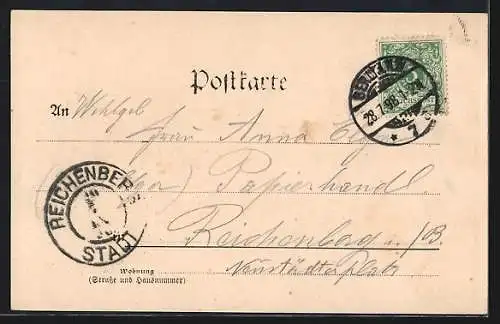 Postkarte
An Wohlgeb
Frau Anna
Papierhandl.
Reichenberg i/B.
Neustädterplatz
Wohnung
(Straße und Hausnummer)
REICHENBERG
STADT
28.7.98
* 7